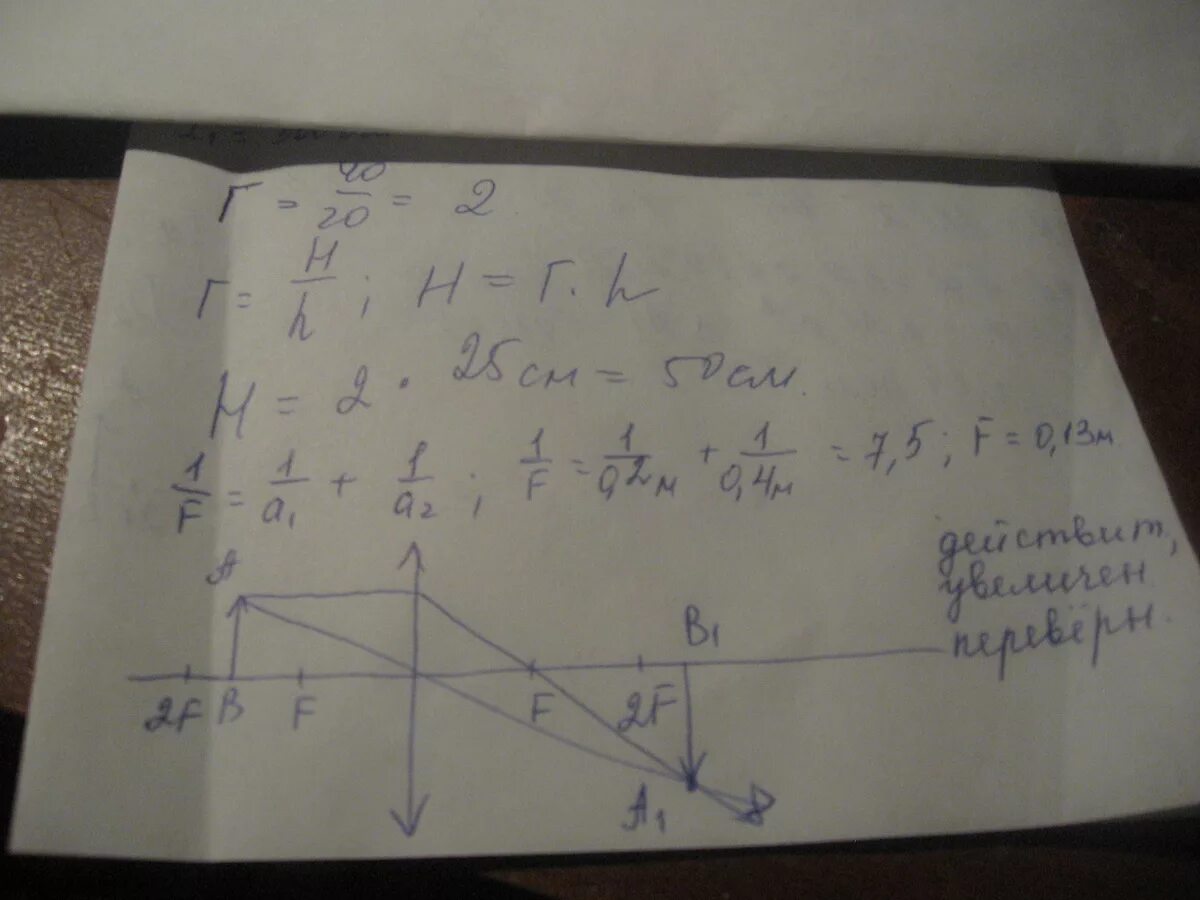 Г = 40/20 = 2
Г = H/h ; H = Г · h
H = 2 · 25 см = 50 см.
1/F = 1/a₁ + 1/a₂ ; 1/F = 1/0,2м + 1/0,4м = 7,5 ; F = 0,13м
действит,
увеличен
перевёрн.
A
B₁
2F B F F 2F
A₁